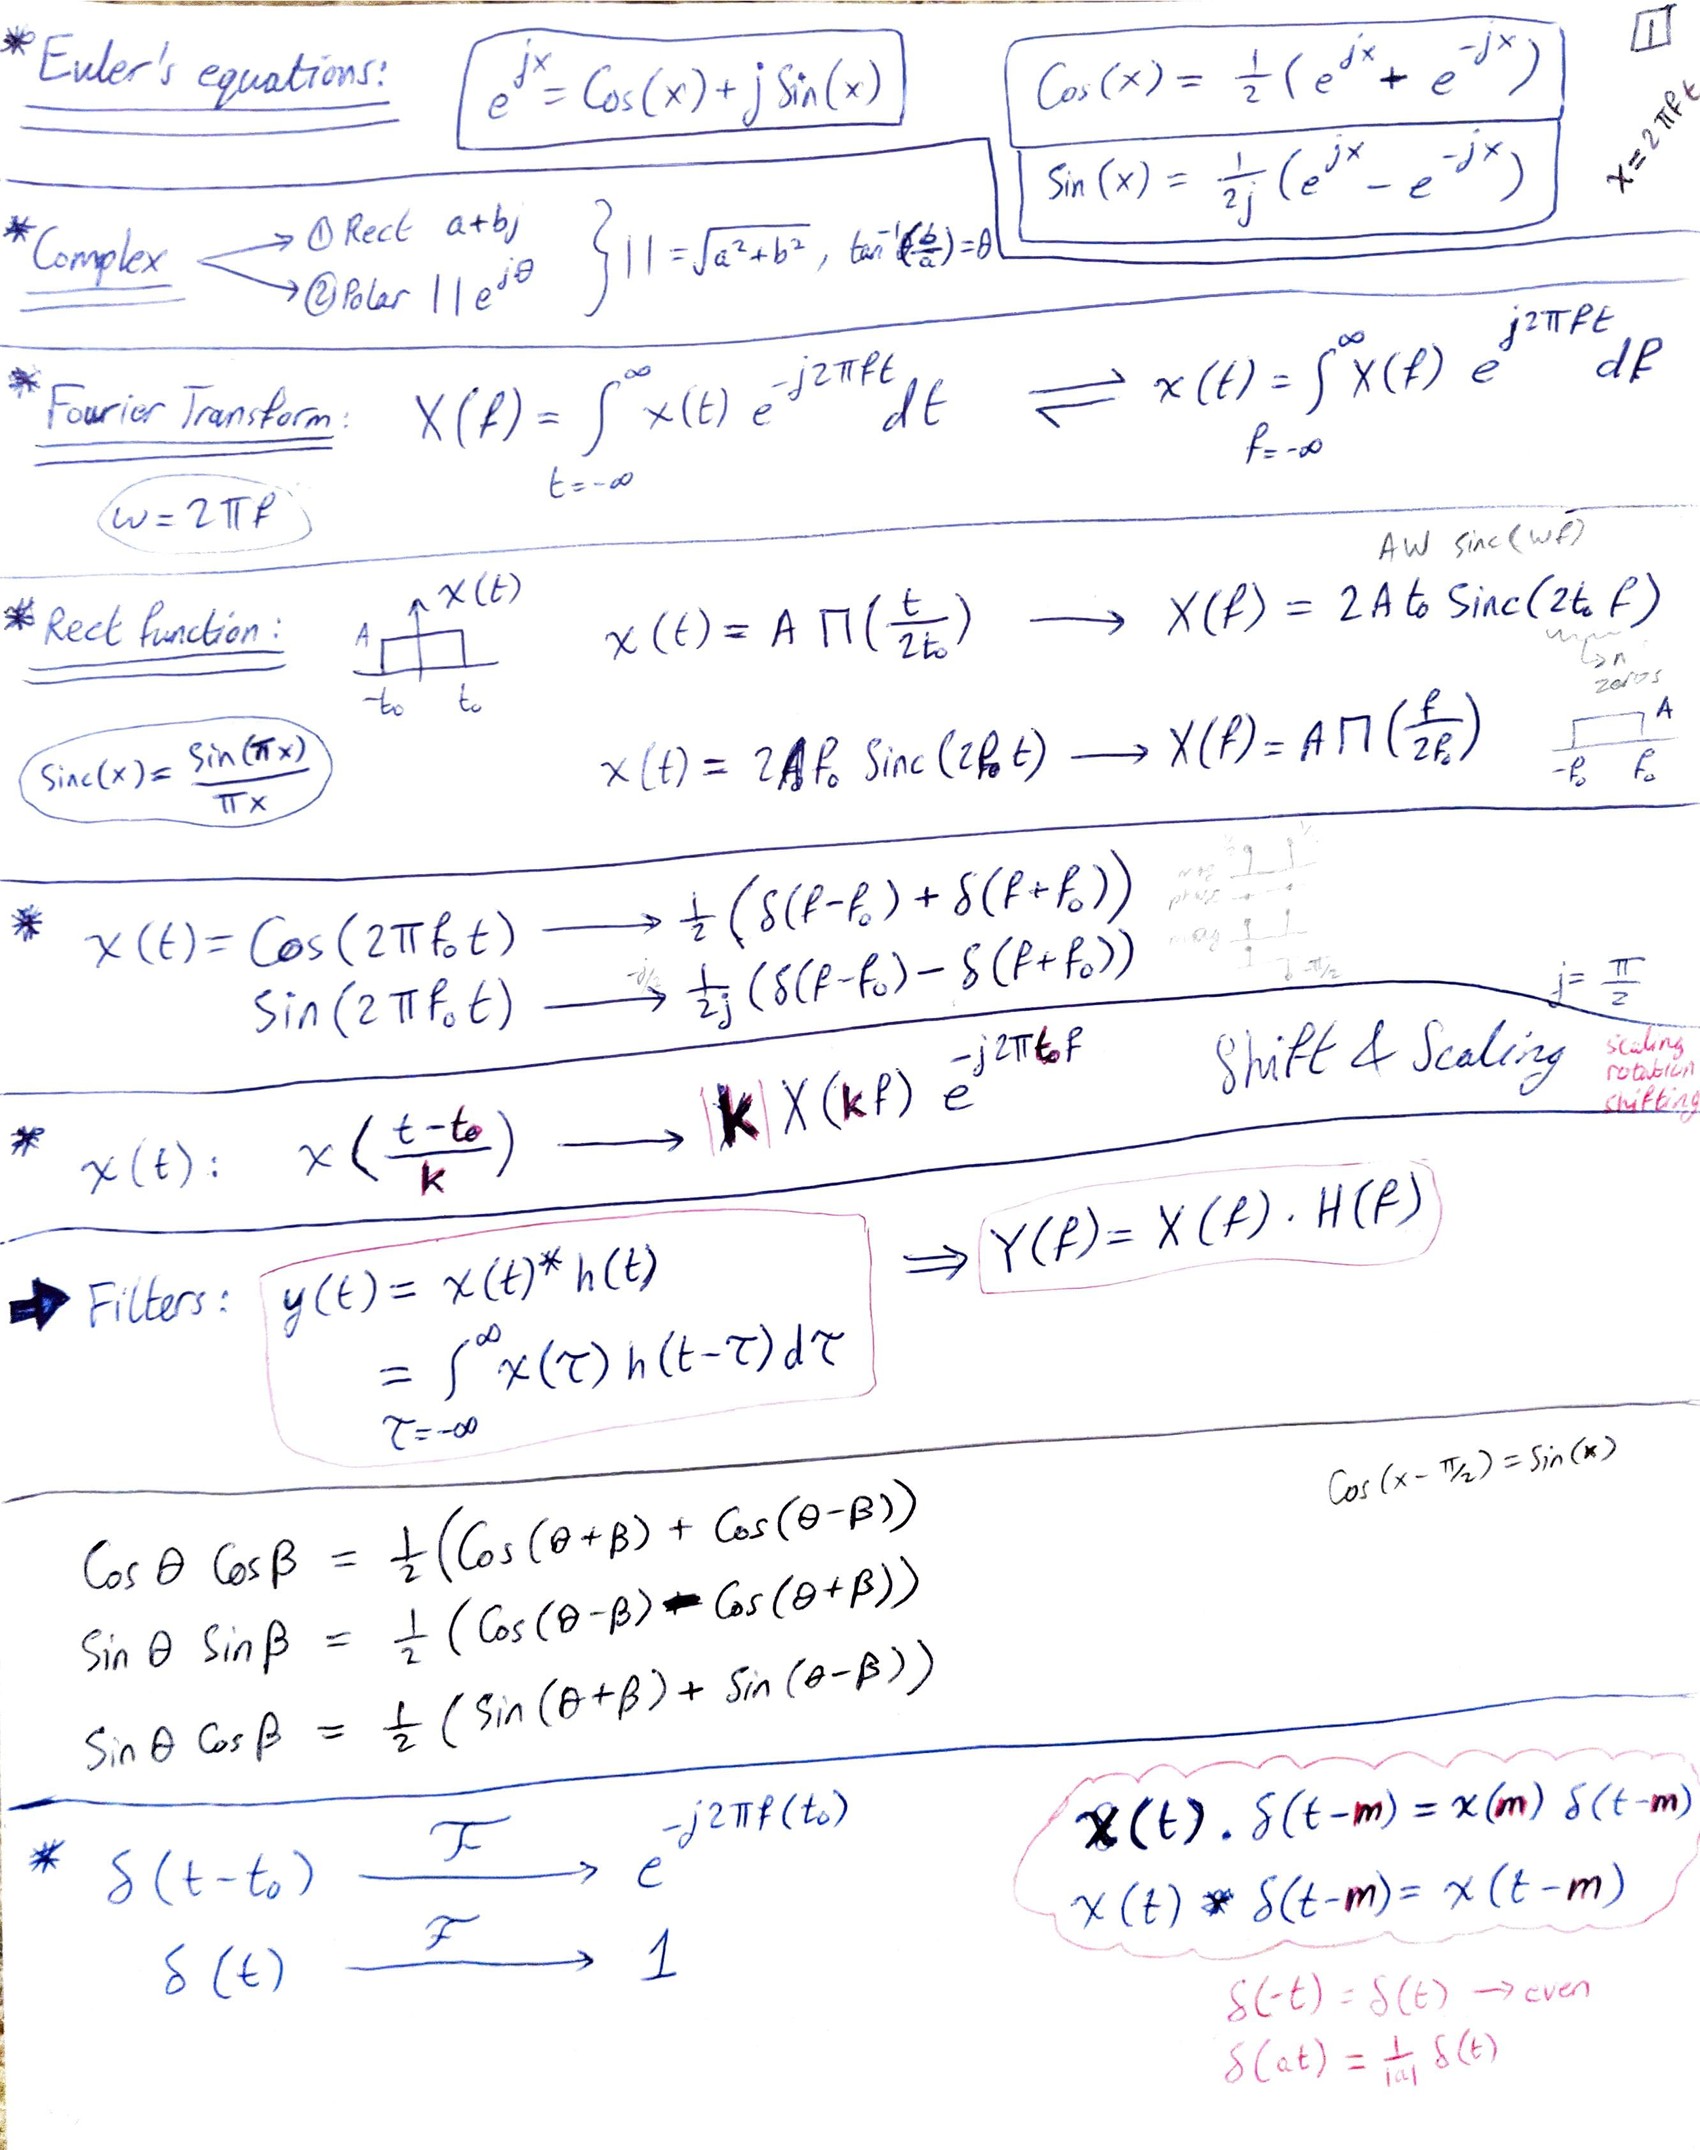 1
*Euler's equations: e^{jx} = Cos(x) + j Sin(x)
Cos(x) = 1/2 (e^{jx} + e^{-jx})
Sin(x) = 1/2j (e^{jx} - e^{-jx})
x = 2πft
*Complex → ① Rect a+bj
→ ② Polar | | e^{jθ}
} | | = √(a²+b²), tan⁻¹(b/a) = θ
*Fourier Transform: X(f) = ∫_{t=-∞}^{∞} x(t) e^{-j2πft} dt ⇌ x(t) = ∫_{f=-∞}^{∞} X(f) e^{j2πft} df
w = 2πf
AW sinc(wf)
*Rect function: x(t) A -t₀ t₀ x(t) = A Π(t/2t₀) → X(f) = 2At₀ Sinc(2t₀f)
↳ n
zeros
Sinc(x) = Sin(πx)/πx
x(t) = 2Af₀ Sinc(2f₀t) → X(f) = AΠ(f/2f₀) A -f₀ f₀
* x(t) = Cos(2πf₀t) → 1/2 (δ(f-f₀) + δ(f+f₀))
mag
phase
Sin(2πf₀t) → 1/2j (δ(f-f₀) - δ(f+f₀))
-j/2
mag
-π/2
j = π/2
Shift & Scaling
scaling
rotation
shifting
* x(t): x((t-t₀)/k) → |k| X(kf) e^{-j2πt₀f}
➡ Filters: y(t) = x(t)*h(t) ⇒ Y(f) = X(f) . H(f)
= ∫_{τ=-∞}^{∞} x(τ) h(t-τ) dτ
Cos(x - π/2) = Sin(x)
Cos θ Cos β = 1/2 (Cos(θ+β) + Cos(θ-β))
Sin θ Sin β = 1/2 (Cos(θ-β) - Cos(θ+β))
Sin θ Cos β = 1/2 (Sin(θ+β) + Sin(θ-β))
* δ(t-t₀) →ℱ e^{-j2πf(t₀)}
δ(t) →ℱ 1
x(t) . δ(t-m) = x(m) δ(t-m)
x(t) * δ(t-m) = x(t-m)
δ(-t) = δ(t) → even
δ(at) = 1/|a| δ(t)